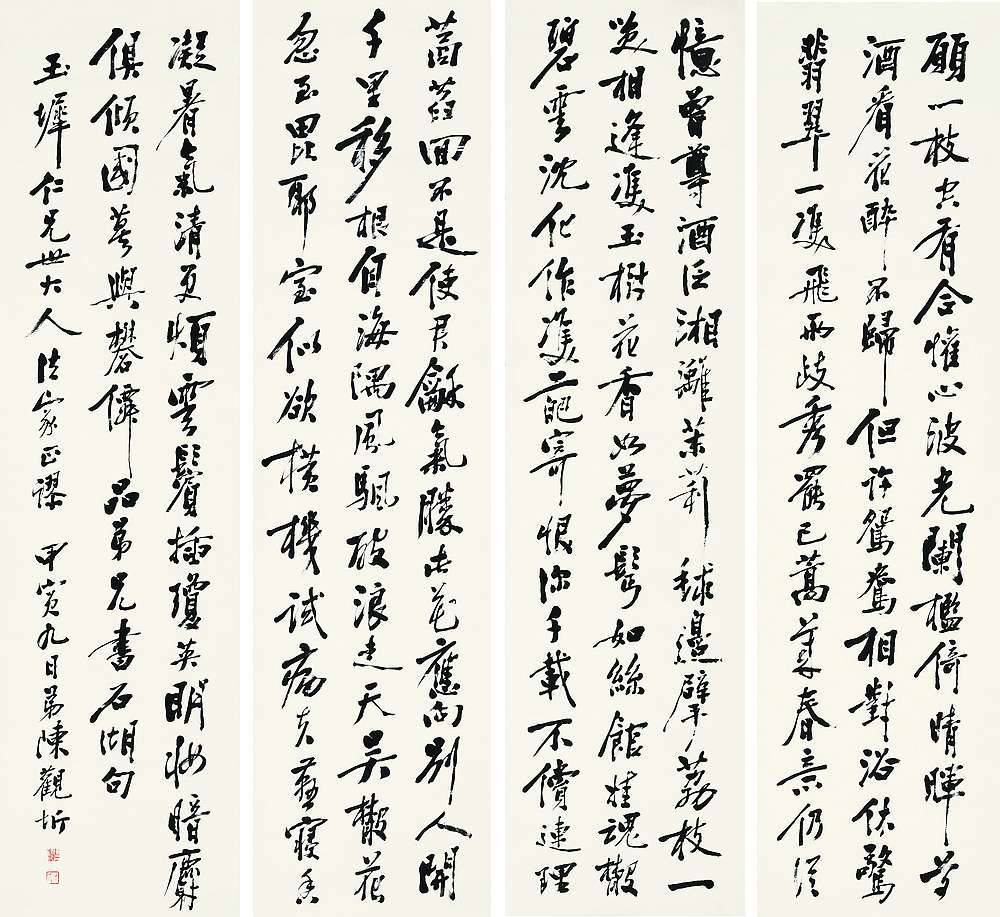 憶曾尊酒泛湘灕茉莉毬邊擘荔枝一
笑相逢雙玉樹花香如夢鬢如絲館娃魂散
碧雲沈化作雙葩寄恨深千載不償連理
願一枝空看合懽心波光闌檻倚晴暉芳
酒看花醉不歸但許鴛鴦相對浴休驚
翡翠一雙飛兩岐秀罷已蒿萊春意仍須
菡萏回不是使君龢氣勝此花應向別人開
千里移根自海隅風颿破浪走天吳散花
忽至毘耶室似欲橫機試病夫燕寢香
凝暑氣清更煩雲鬢插瓊英明妝暗麝
俱傾國莫與礬僊品弟兄書石湖句
玉墀仁兄世大人法家正謬 甲寅九日弟陳觀圻